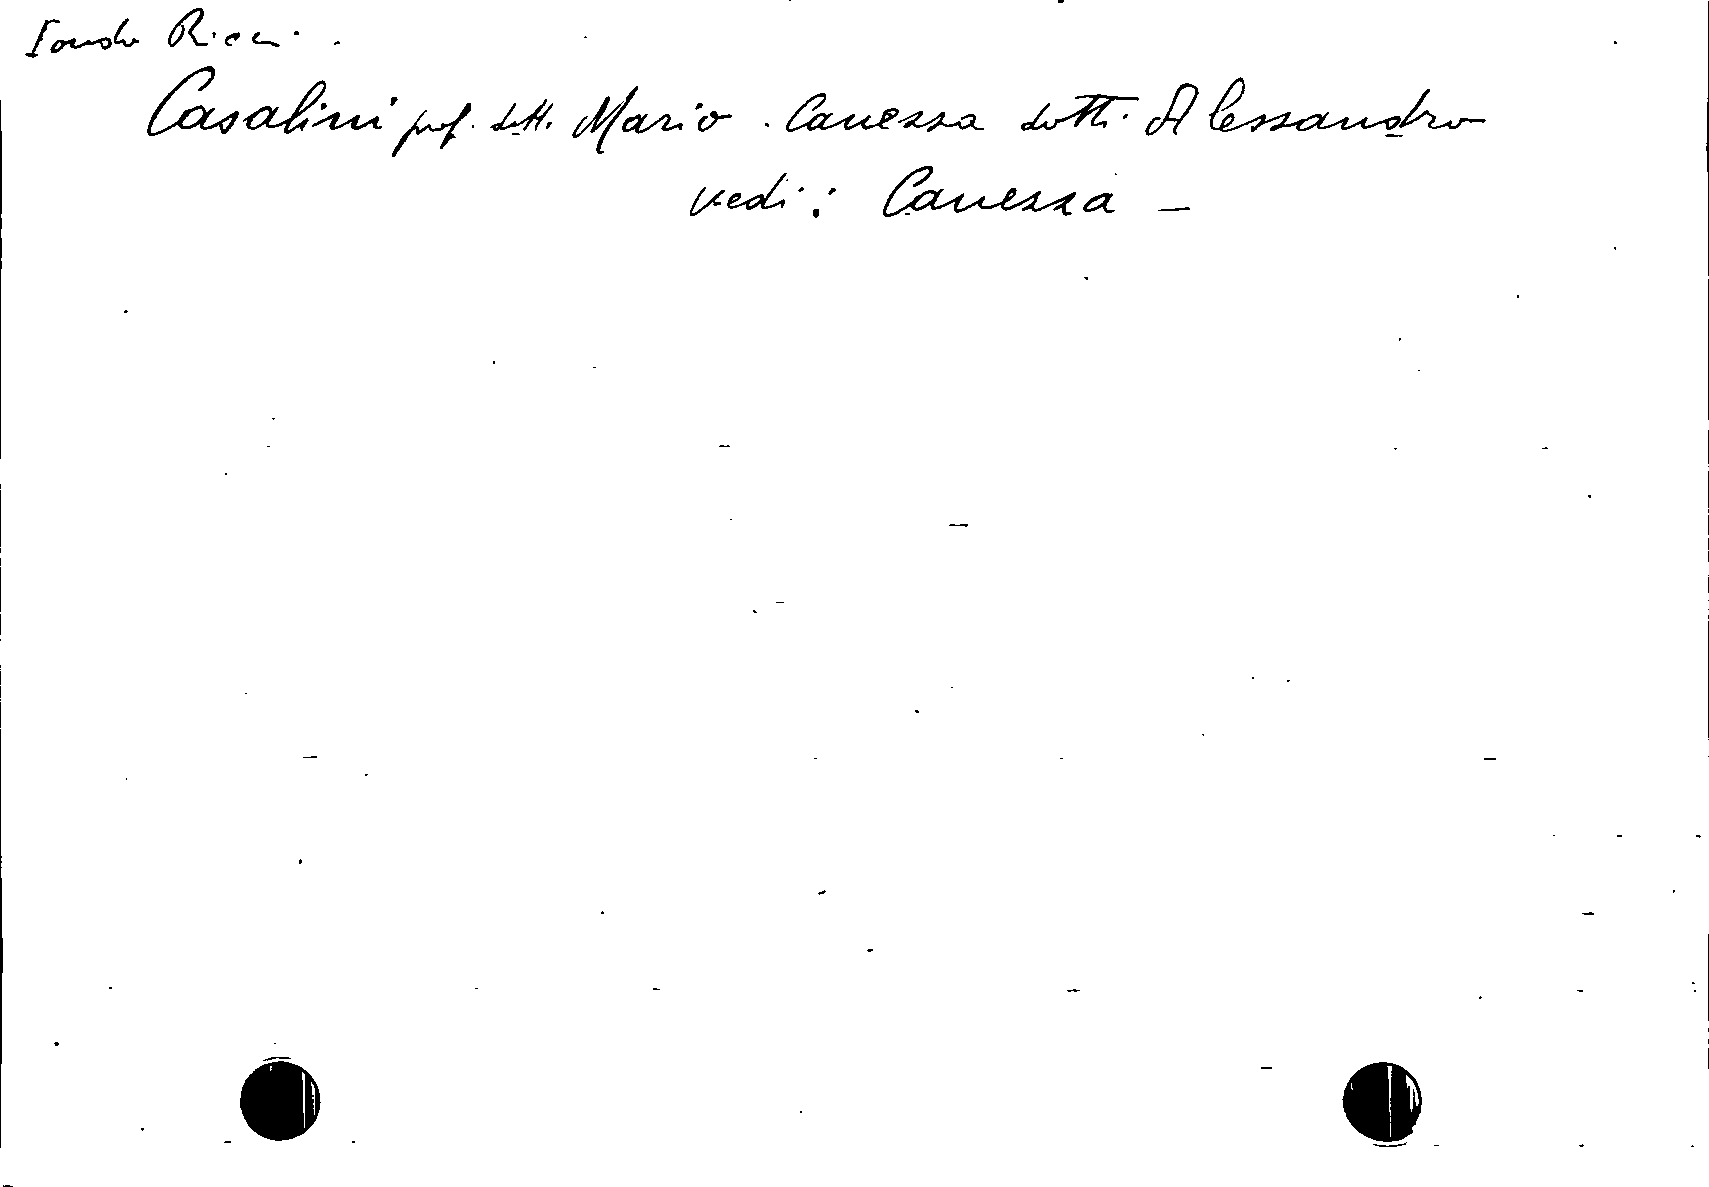 Fondo Ricci.
Casalini prof. dott. Mario. Canessa dott. Alessandro
vedi: Canessa -